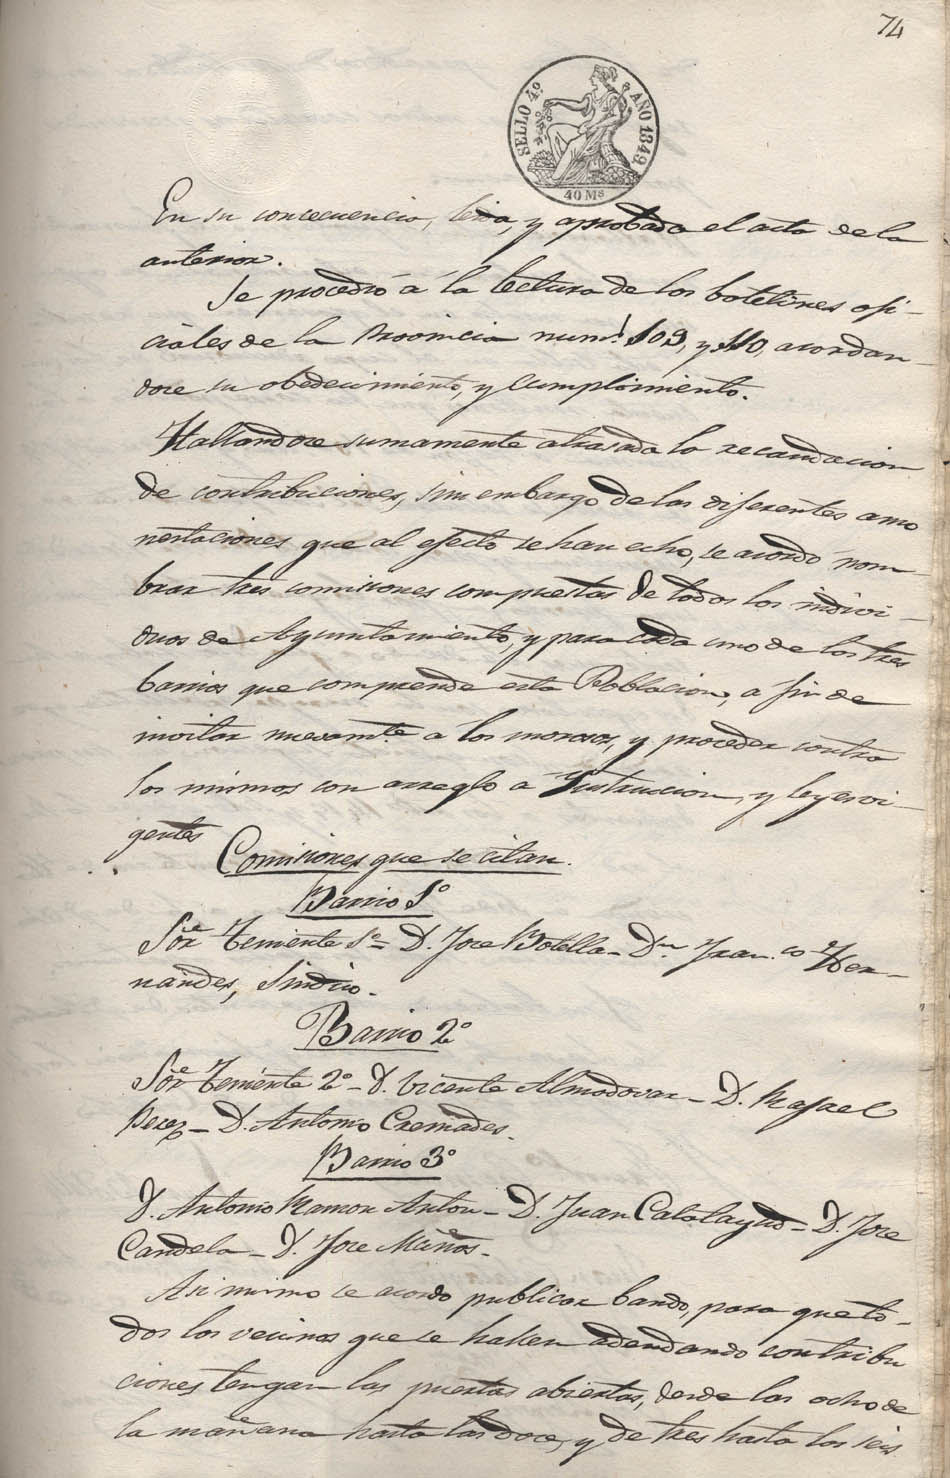 74
SELLO 4º AÑO 1849.
40 Mˢ
En su concecuencia, leida, y aprobada el acta de la
anterior.
Se procedió á la lectura de los boletines ofi-
ciales de la Provincia num.ˢ 109, y 110, acordan
dose su obedecimiento, y cumplimiento.
Hallandose sumamente atrasada la recaudacion
de contribuciones, sin embargo de las diferentes amo
nestaciones que al efecto se han echo, se acordó nom-
brar tres comisiones compuestas de todos los indivi-
duos de Ayuntamiento, y para cada uno de los tres
barrios que comprende esta Poblacion, a fin de
invitar nuevamte a los morosos, y proceder contra
los mismos con arreglo a Instrucion, y leyes vi-
gentes
Comisiones que se citan.
Barrio 1º
Sor Teniente 1º - D. Jose Botella - Dn. Fran.co Her-
nandes, Sindico.
Barrio 2º
Sor Teniente 2º - D. Vicente Almodovar - D. Rafael
Perez - D. Antonio Cremades.
Barrio 3º
D. Antonio Ramon Anton - D. Juan Calatayud - D. Jose
Candela - D. Jose Mañas.
Asi mismo se acordo publicar bando, para que to-
dos los vecinos que se hallen adeudando contribu
ciones tengan las puertas abiertas, desde las ocho de
la mañana hasta las doce, y de tres hasta las seis